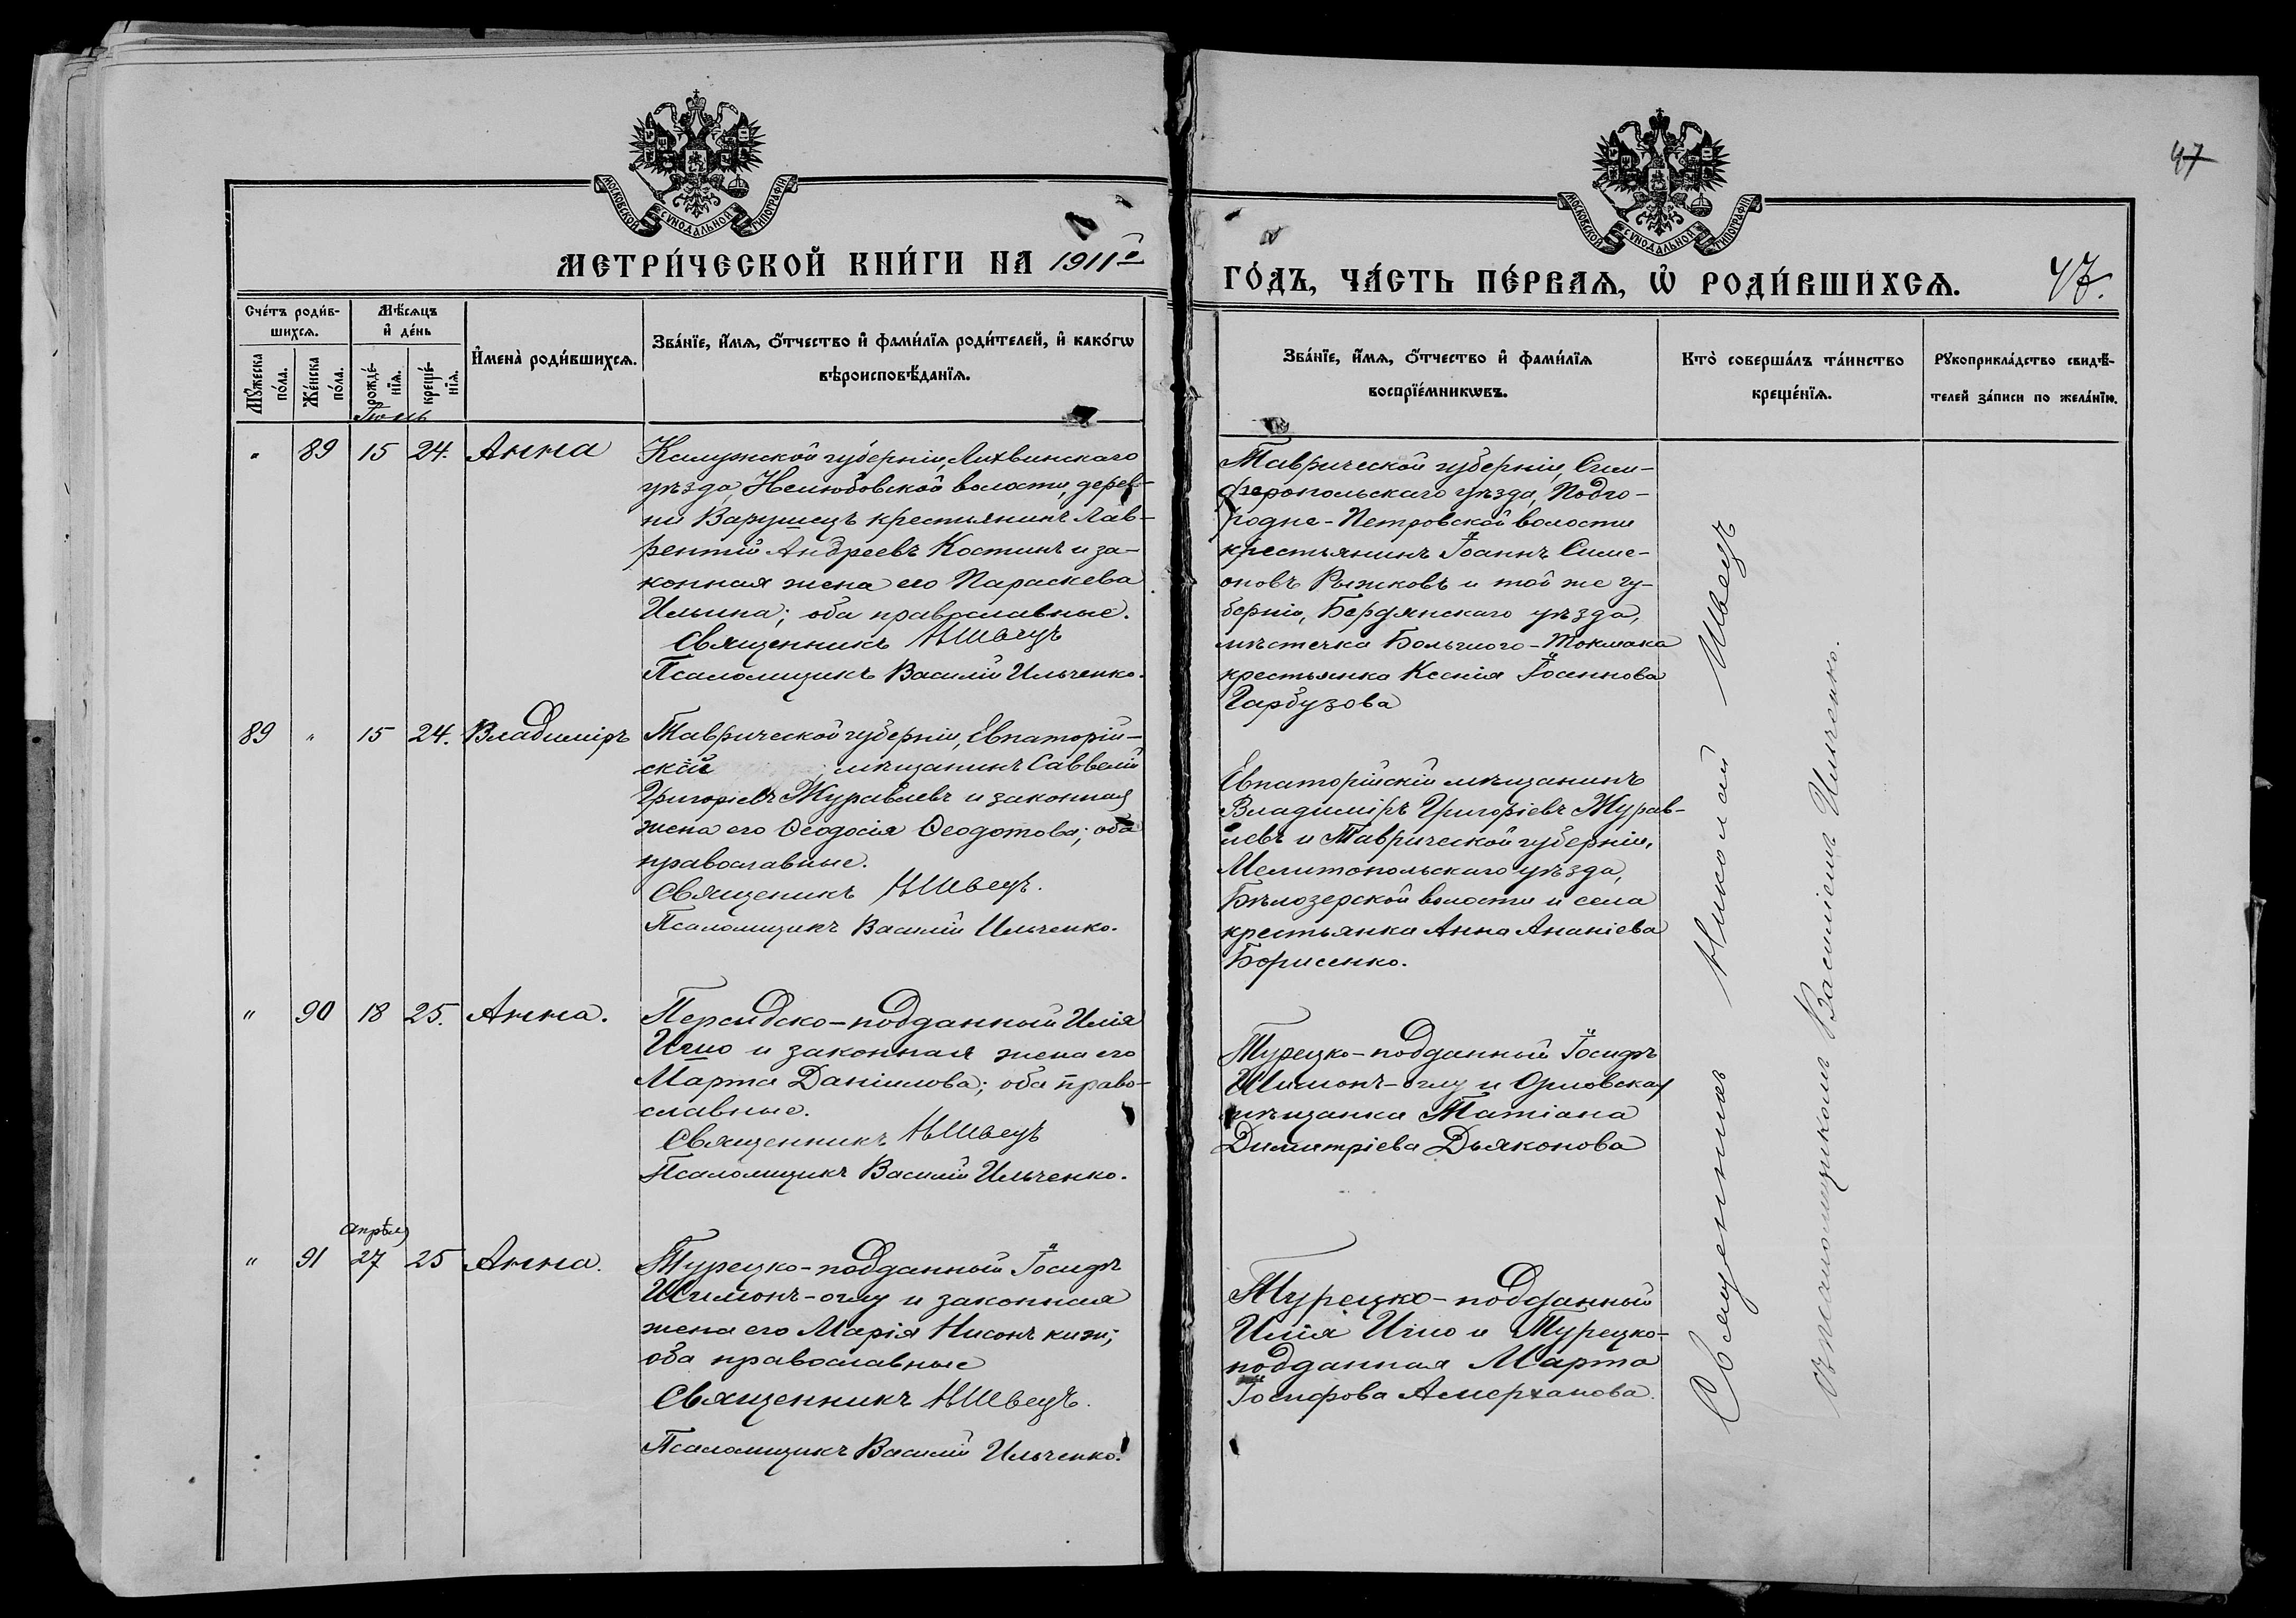 47
МОСКОВСКОЙ СѴНОДАЛЬНОЙ ТИПОГРАФІИ
МОСКОВСКОЙ СѴНОДАЛЬНОЙ ТИПОГРАФІИ
МЕТРИ́ЧЕСКОЙ КНИ́ГИ НА 1911й
ГО́ДЪ, ЧА́СТЬ ПЕ́РВАѦ, Ѡ҆ РОДИ́ВШИХСѦ. 47.
Сче́тъ роди́в-
шихсѧ.
Мꙋ́жеска по́ла.
Же́нска по́ла.
Мѣ́сѧцъ
и҆ де́нь
рожде́-
нїѧ.
креще́-
нїѧ.
И҆мена̀ роди́вшихсѧ.
Зва́нїе, и҆́мѧ, ѻ҆́тчество и҆ фами́лїѧ роди́телей, и҆ како́гѡ
вѣроисповѣ́данїѧ.
Зва́нїе, и҆́мѧ, ѻ҆́тчество и҆ фами́лїѧ
воспрїе́мникѡвъ.
Кто̀ соверша́лъ та́инство
креще́нїѧ.
Рꙋкоприкла́дство свидѣ́-
телей за́писи по жела́нїю.
Іюнь
" 89 15 24. Анна
Калужской губерніи, Лихвинскаго
уѣзда, Нелюбовской волости, дерев-
ни Варушицъ крестьянинъ Лав-
рентій Андреевъ Костинъ и за-
конная жена его Параскева
Ильина; оба православные.
Священникъ НШвецъ
Псаломщикъ Василій Ильченко.
Таврической губерніи, Сим-
феропольскаго уѣзда, Подго-
родне-Петровской волости
крестьянинъ Іоаннъ Симе-
оновъ Рыжковъ и той же гу-
берніи, Бердянскаго уѣзда,
мѣстечка Большого-Токмака
крестьянка Ксенія Іоаннова
Гарбузова
89 " 15 24. Владиміръ
Таврической губерніи, Евпаторій-
скій мѣщанинъ Савелій
Григорьевъ Журавлевъ и законная
жена его Ѳеодосія Ѳеодотова; оба
православные.
Священикъ НШвецъ.
Псаломщикъ Василій Ильченко.
Евпаторійскій мѣщанинъ
Владиміръ Григоріевъ Журав-
левъ и Таврической губерніи,
Мелитопольскаго уѣзда,
Бѣлозерской волости и села
крестьянка Анна Ананіева
Борисенко.
" 90 18 25. Анна.
Персидско-подданный Илія
Игшо и законная жена его
Марта Даніилова; оба право-
славные.
Священникъ НШвецъ
Псаломщикъ Василій Ильченко.
Турецко-подданный Іосифъ
Шимонъ-оглу и Орловская
мѣщанка Татіана
Димитріева Дьяконова
апрѣля
" 91 27 25 Анна.
Турецко-подданный Іосифъ
Шимонъ-оглу и законная
жена его Марія Нисонъ кизи;
оба православные
Священникъ НШвецъ.
Псаломщикъ Василій Ильченко.
Турецко-подданный
Илія Игшо и Турецко-
подданная Марта
Іосифова Амерханова.
Священникъ Николай Швецъ
съ псаломщикомъ Василіемъ Ильченко.